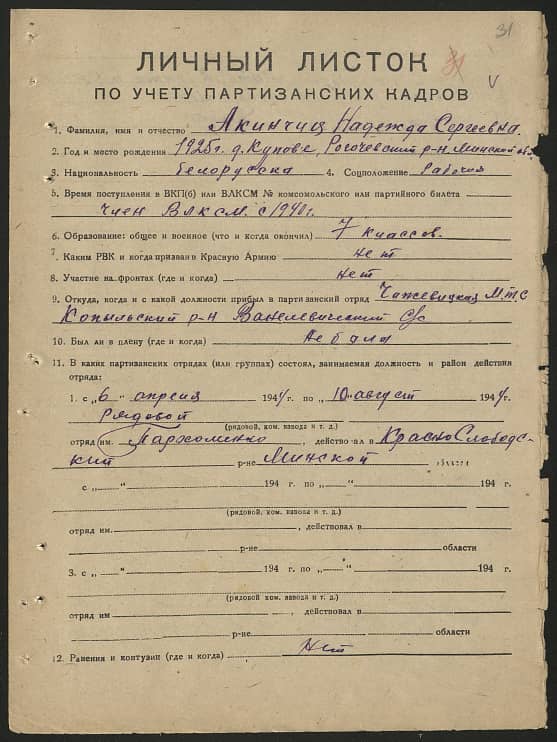 31
ЛИЧНЫЙ ЛИСТОК
ПО УЧЕТУ ПАРТИЗАНСКИХ КАДРОВ
1. Фамилия, имя и отчество Акинчиц Надежда Сергеевна.
2. Год и место рождения 1925г. д. Купове, Рогочевский р-н Минской об.
3. Национальность белорусска 4. Соцположение Рабочая
5. Время поступления в ВКП(б) или ВЛКСМ № комсомольского или партийного билета
Член ВЛКСМ с 1940г.
6. Образование: общее и военное (что и когда окончил) 7 классов.
7. Каким РВК и когда призван в Красную Армию нет
8. Участие на фронтах (где и когда) нет
9. Откуда, когда и с какой должности прибыл в партизанский отряд М.Т.С
Копыльский р-н с/с
10. Был ли в плену (где и когда) не была
11. В каких партизанских отрядах (или группах) состоял, занимаемая должность и район действия
отряда:
1. с „6" апреля 1944 г. по „10" август 1944 г.
рядовой
(рядовой, ком. взвода и т. д.)
отряд им. Пархоменко, действовал в Краснослободс-
кий р-не Минской области
с „ " 194 г. по „ " 194 г.
(рядовой, ком. взвода и т. д.)
отряд им. , действовал в
р-не области
3. с „ " 194 г. по „ " 194 г.
(рядовой, ком. взвода и т. д.)
отряд им , действовал в
р-не области
12. Ранения и контузии (где и когда) Нет